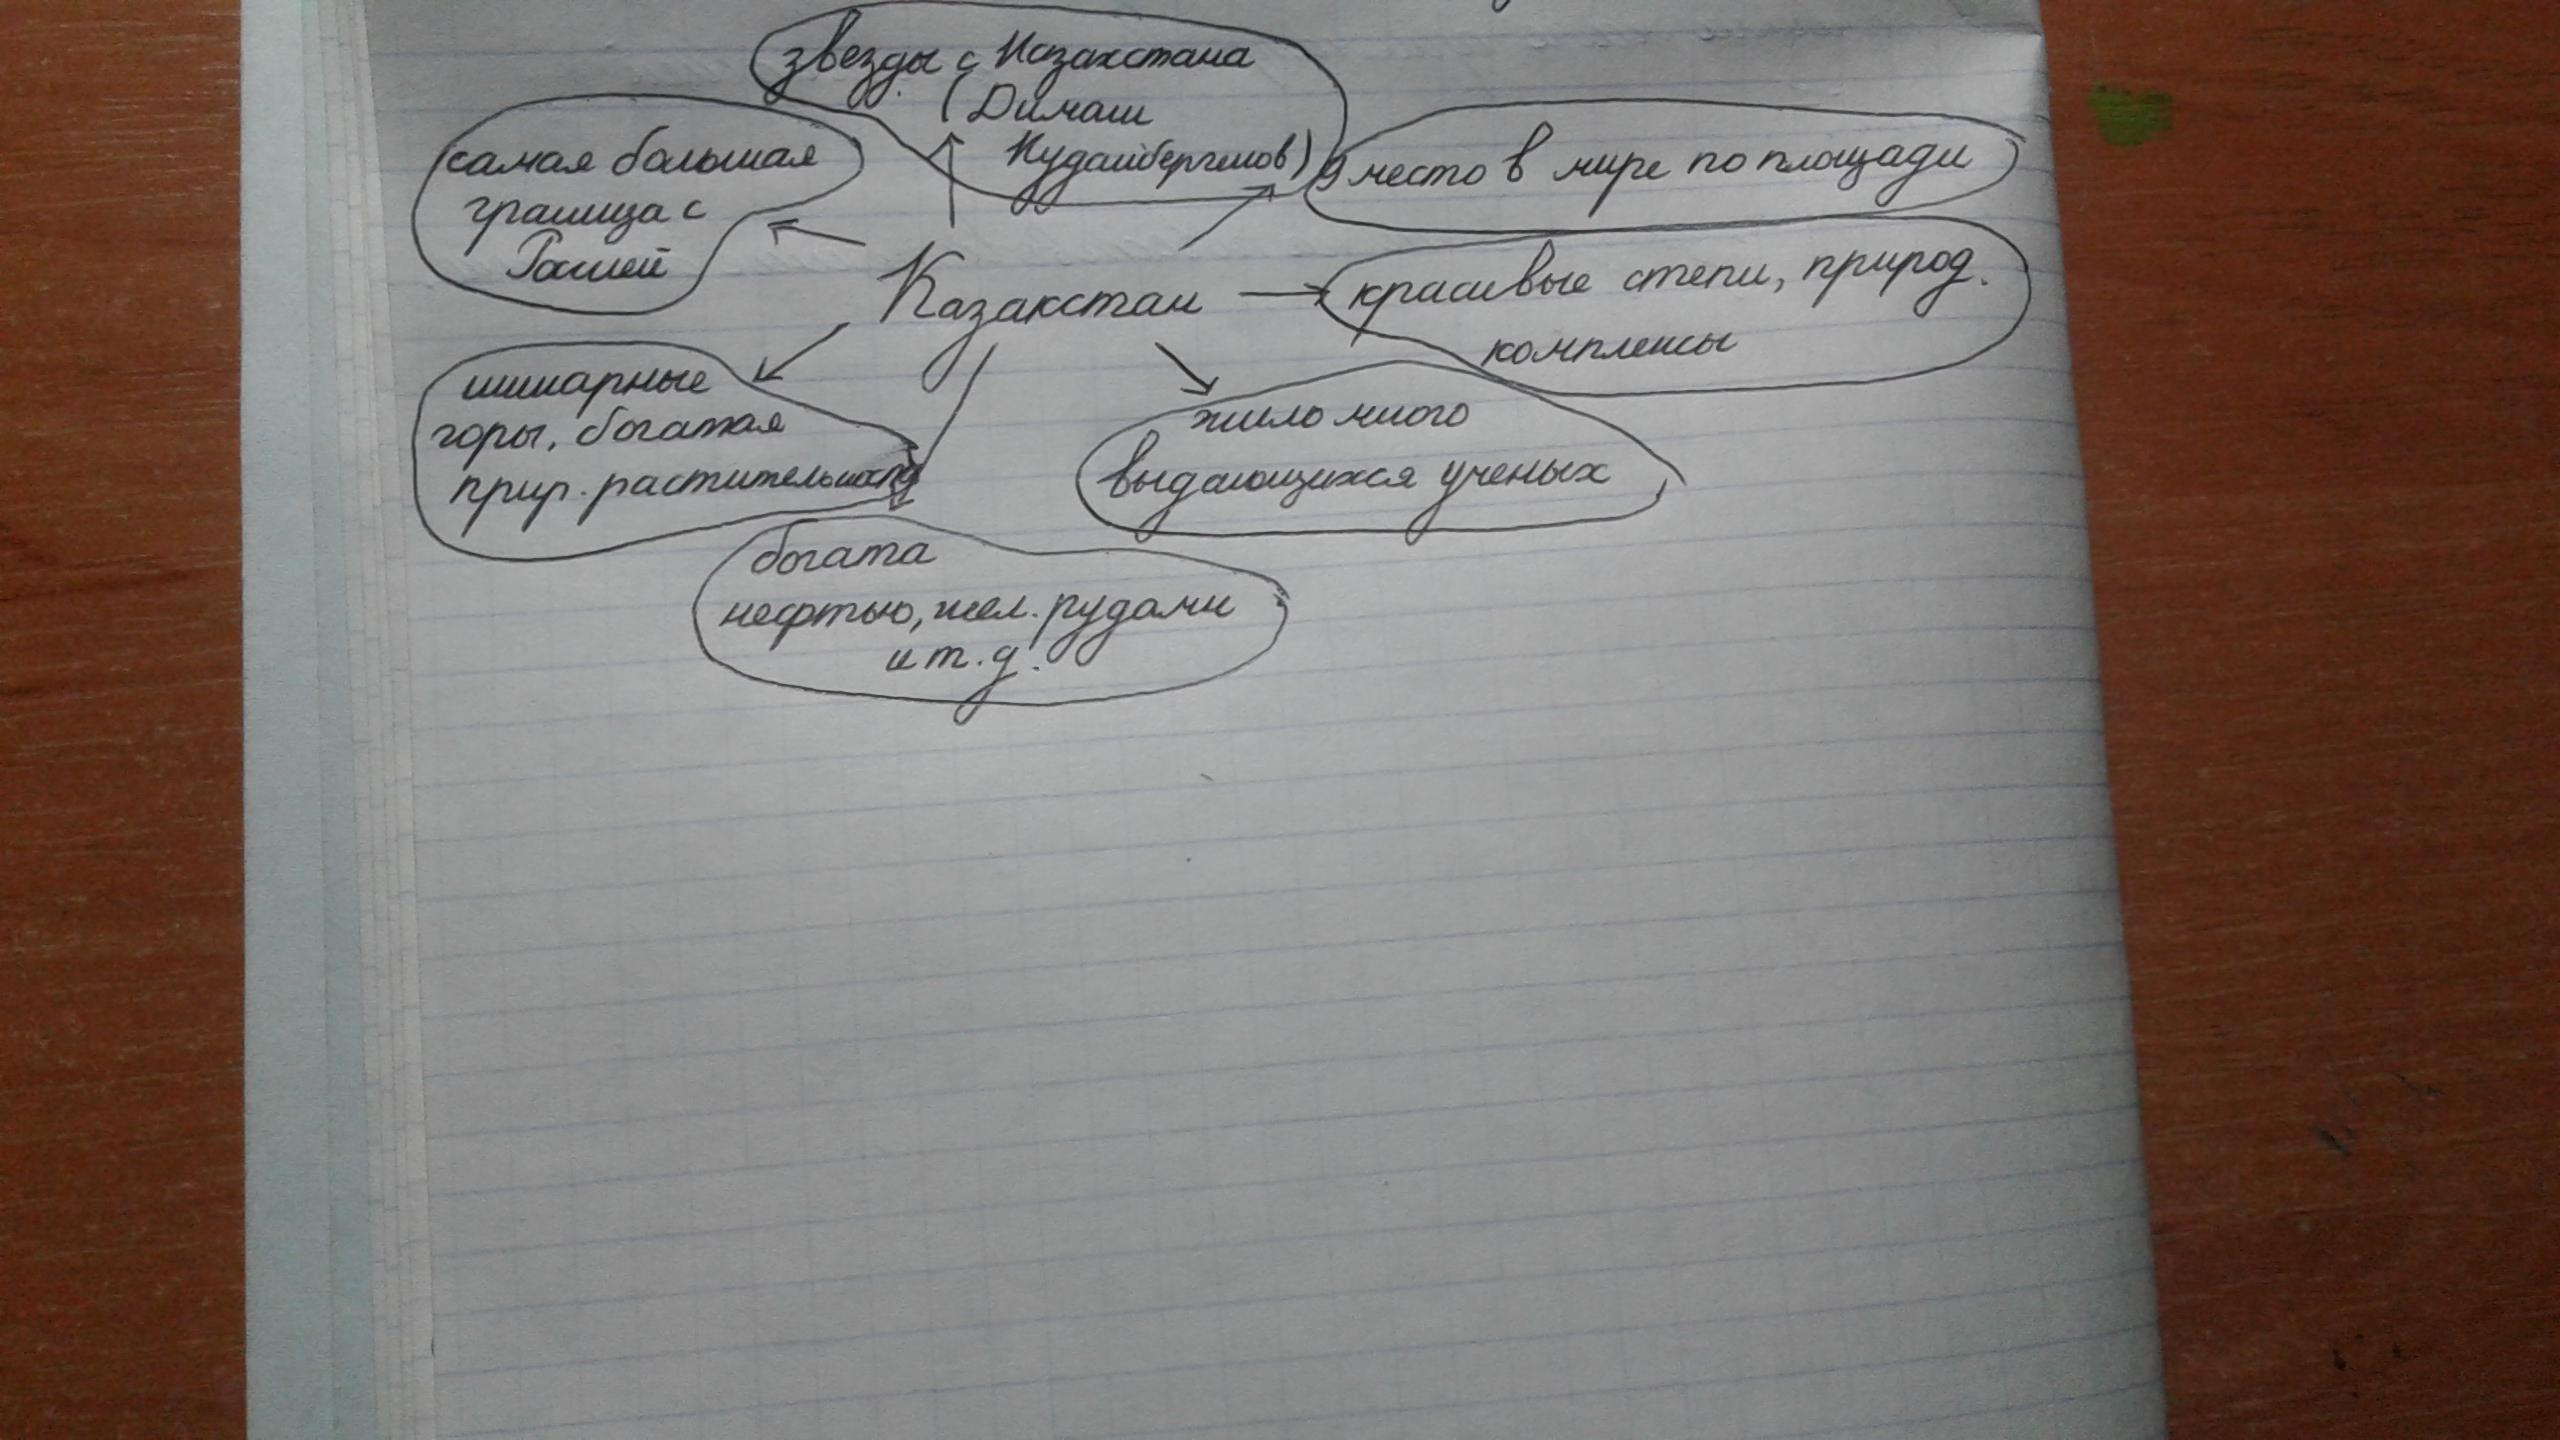 звезды с Казахстана
(Димаш
Кудайбергенов)
самая большая
граница с
Россией
9 место в мире по площади
Казахстан
красивые степи, природ.
комплексы
шикарные
горы, богатая
прир. растительность
жило много
выдающихся ученых
богата
нефтью, жел. рудами
и т.д.